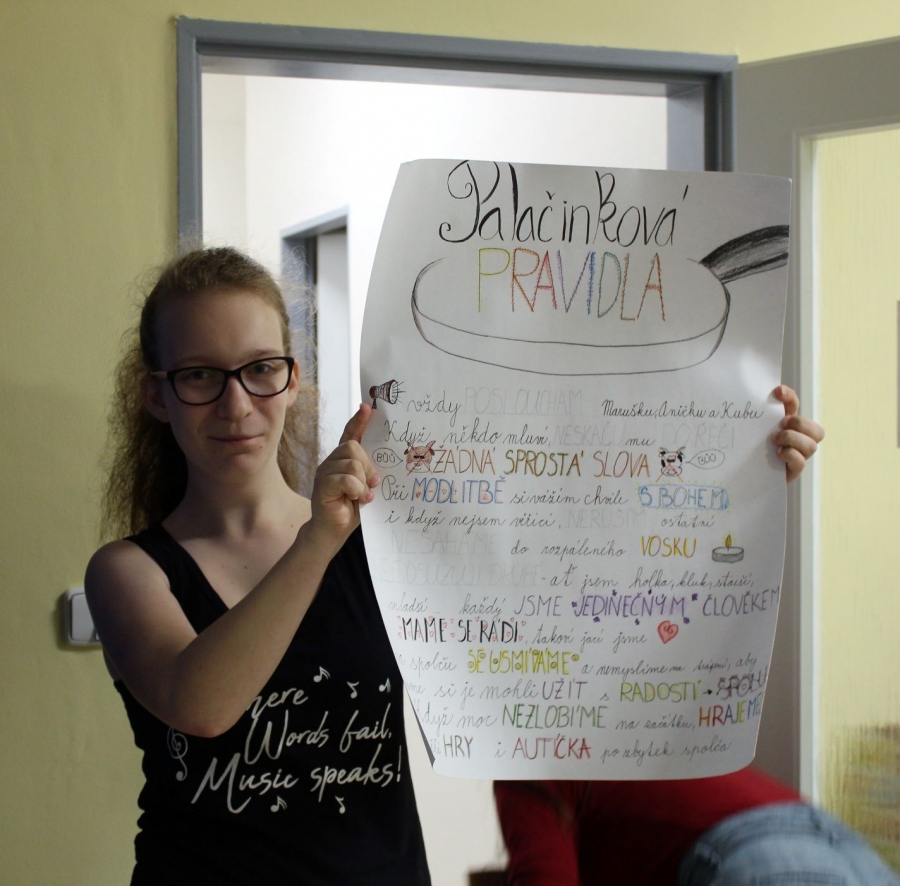 Palačinková
PRAVIDLA
vždy POSLOUCHÁM Marušku, Aničku a Kubu
Když někdo mluví, NESKÁČU mu DO ŘEČI
BÚÚ ŽÁDNÁ SPROSTÁ SLOVA BÚÚ
Při MODLITBĚ si vážím chvíle S BOHEM
i když nejsem věřící, NERUŠÍM ostatní
NESAHÁME do rozpáleného VOSKU
- ať jsem holka, kluk, starší,
mladší každý JSME JEDINEČNÝM ČLOVĚKEM
MÁME SE RÁDI, takoví jací jsme
spolču SE USMÍVÁME a nemyslíme na trápení, aby
si je mohli UŽÍT s RADOSTÍ SPOLU
když moc NEZLOBÍME na začátku, HRAJEME
HRY i AUTÍČKA po zbytek spolča
Where
Words fail,
Music speaks!